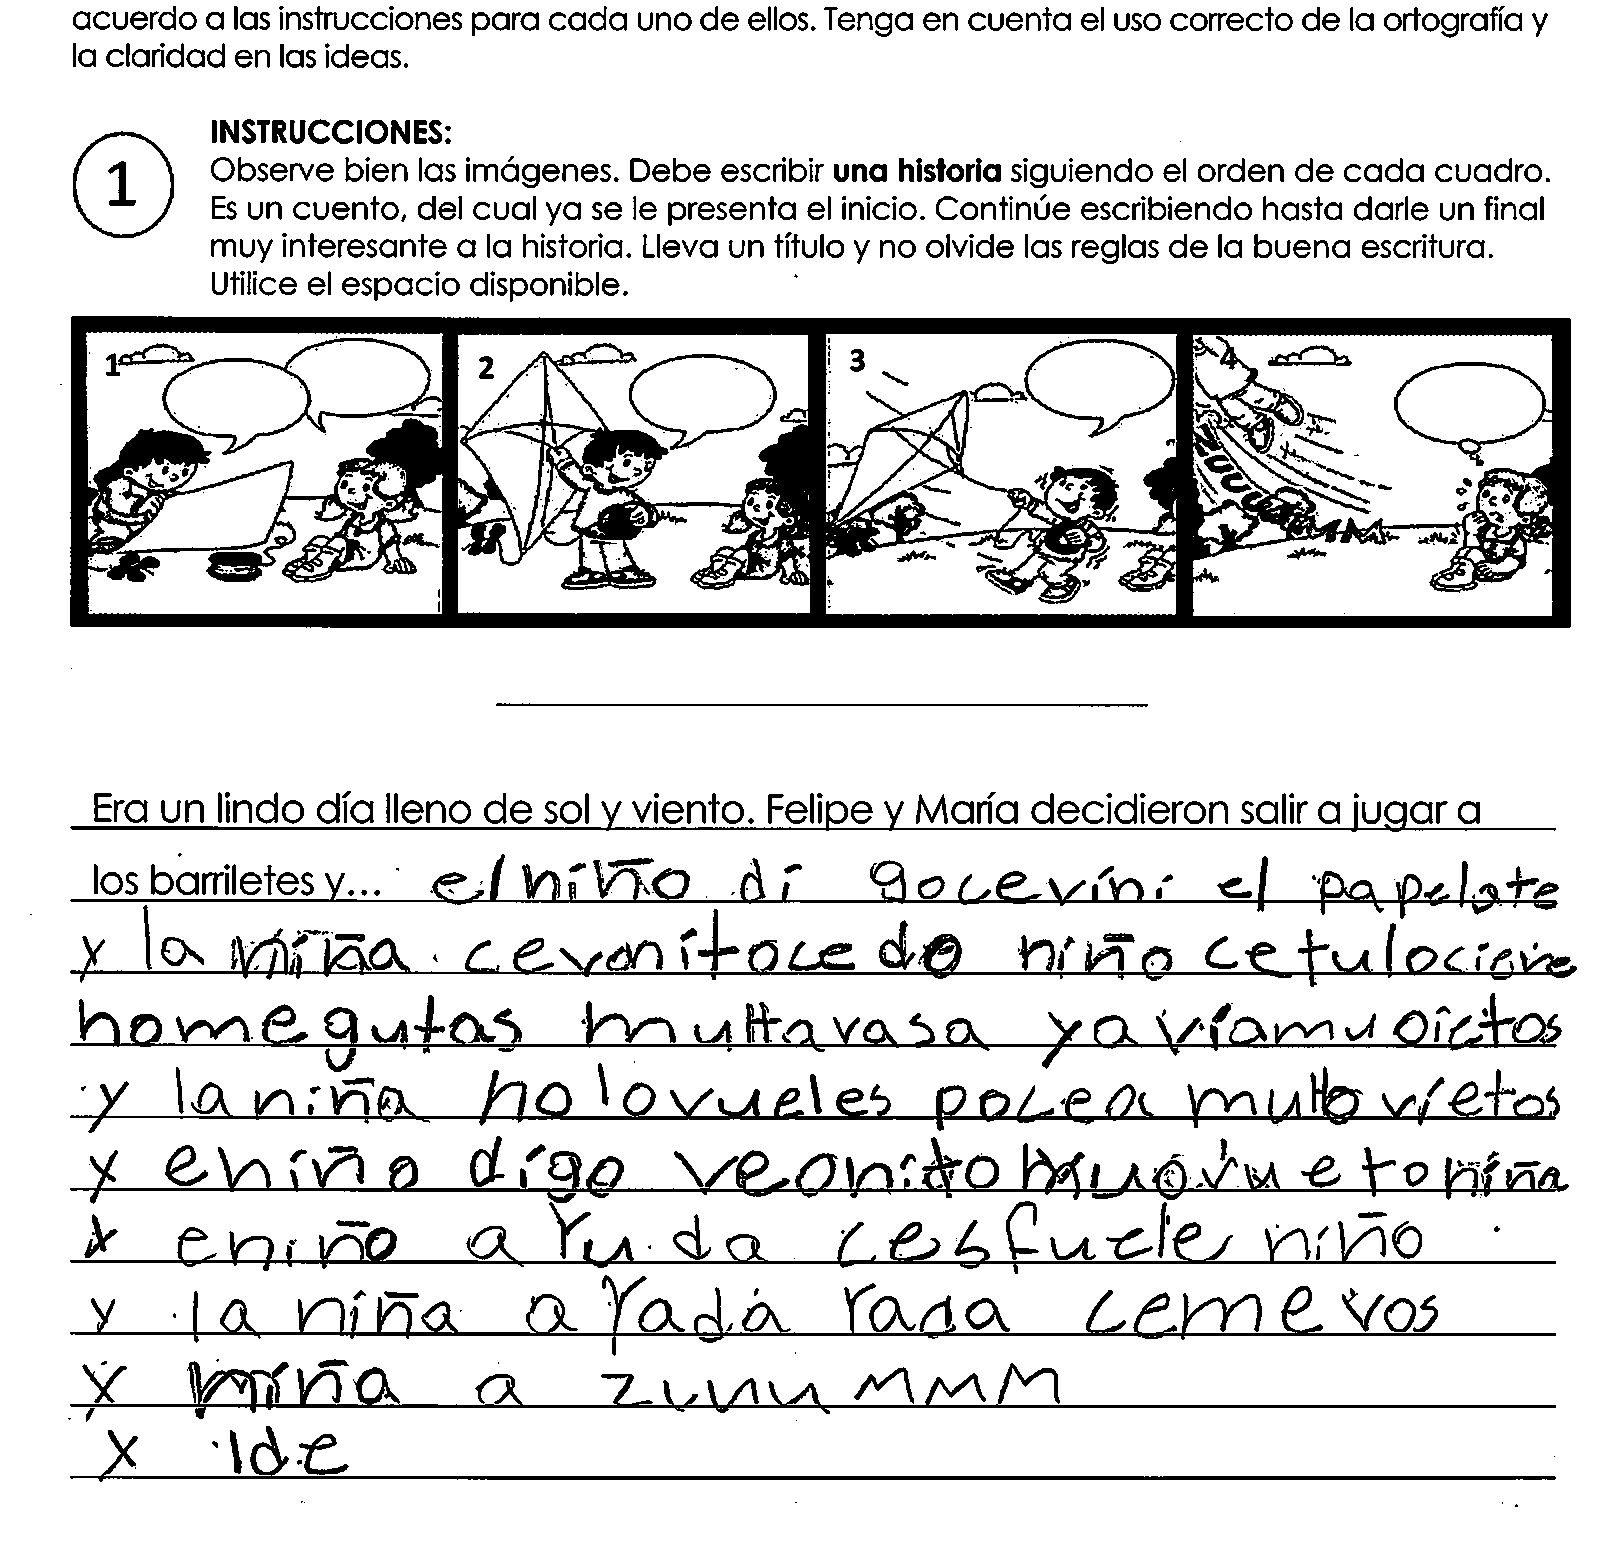 acuerdo a las instrucciones para cada uno de ellos. Tenga en cuenta el uso correcto de la ortografía y
la claridad en las ideas.
1
INSTRUCCIONES:
Observe bien las imágenes. Debe escribir una historia siguiendo el orden de cada cuadro.
Es un cuento, del cual ya se le presenta el inicio. Continúe escribiendo hasta darle un final
muy interesante a la historia. Lleva un título y no olvide las reglas de la buena escritura.
Utilice el espacio disponible.
1 2 3 4
Era un lindo día lleno de sol y viento. Felipe y María decidieron salir a jugar a
los barriletes y... el niño di goceviní el papelote
y la niña cevonítoce do niño cetulo
homegutas muttavasa yavíamu oictos
y la niña no lovueles pocea mutto víetos
y eniño dígo veonito niña
y eniño ayuda cesfuele niño
y la niña a yada rada cemevos
y niña a zuuuMMM
y lde